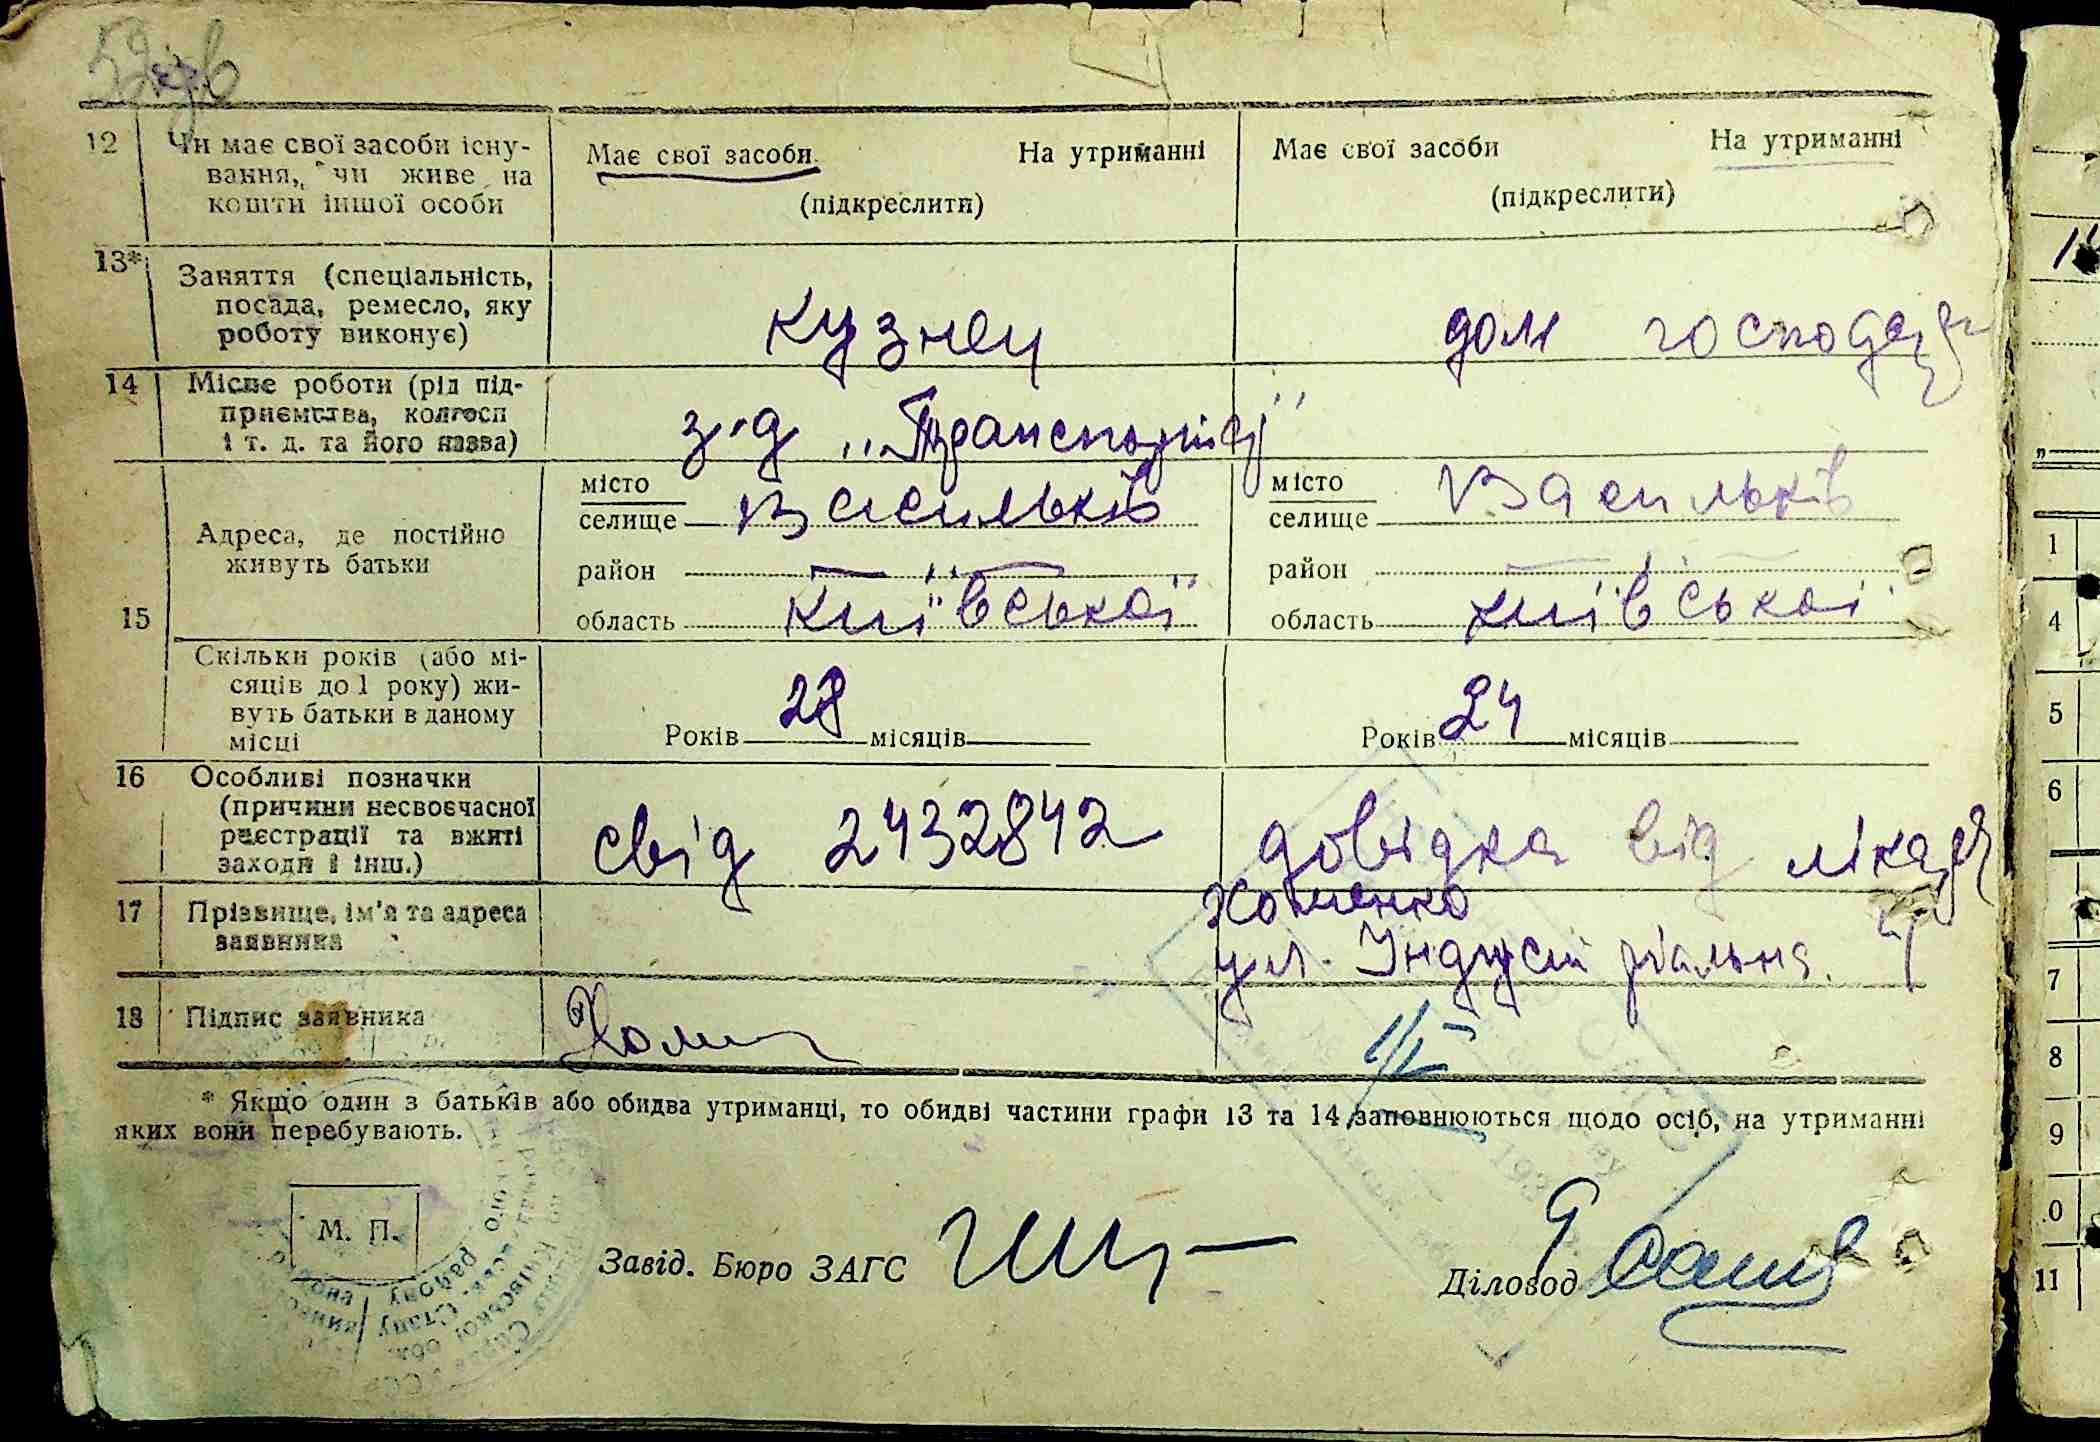 12 Чи має свої засоби існу-
вання, чи живе на
кошти іншої особи
Має свої засоби На утриманні
(підкреслити)
Має свої засоби На утриманні
(підкреслити)
13* Заняття (спеціальність,
посада, ремесло, яку
роботу виконує)
кузнец
дом господар
14 Місце роботи (рід під-
приємства, колгосп
і т. д. та його назва)
з-д „Транспортн"
15 Адреса, де постійно
живуть батьки
місто
селище Васильків
район —
область Київської
місто
селище Васильків
район —
область Київської
Скільки років (або мі-
сяців до 1 року) жи-
вуть батьки в даному
місці
Років 28 місяців
Років 24 місяців
16 Особливі позначки
(причини несвоєчасної
реєстрації та вжиті
заходи і інш.)
свід 2432842
довідка від лікаря
17 Прізвище, ім'я та адреса
заявника
Хоменко
ул. Індустріальна
18 Підпис заявника
Хоме
* Якщо один з батьків або обидва утриманці, то обидві частини графи 13 та 14 заповнюються щодо осіб, на утриманні
яких вони перебувають.
М. П.
Завід. Бюро ЗАГС
Діловод
1
4
5
6
7
8
9
0
11